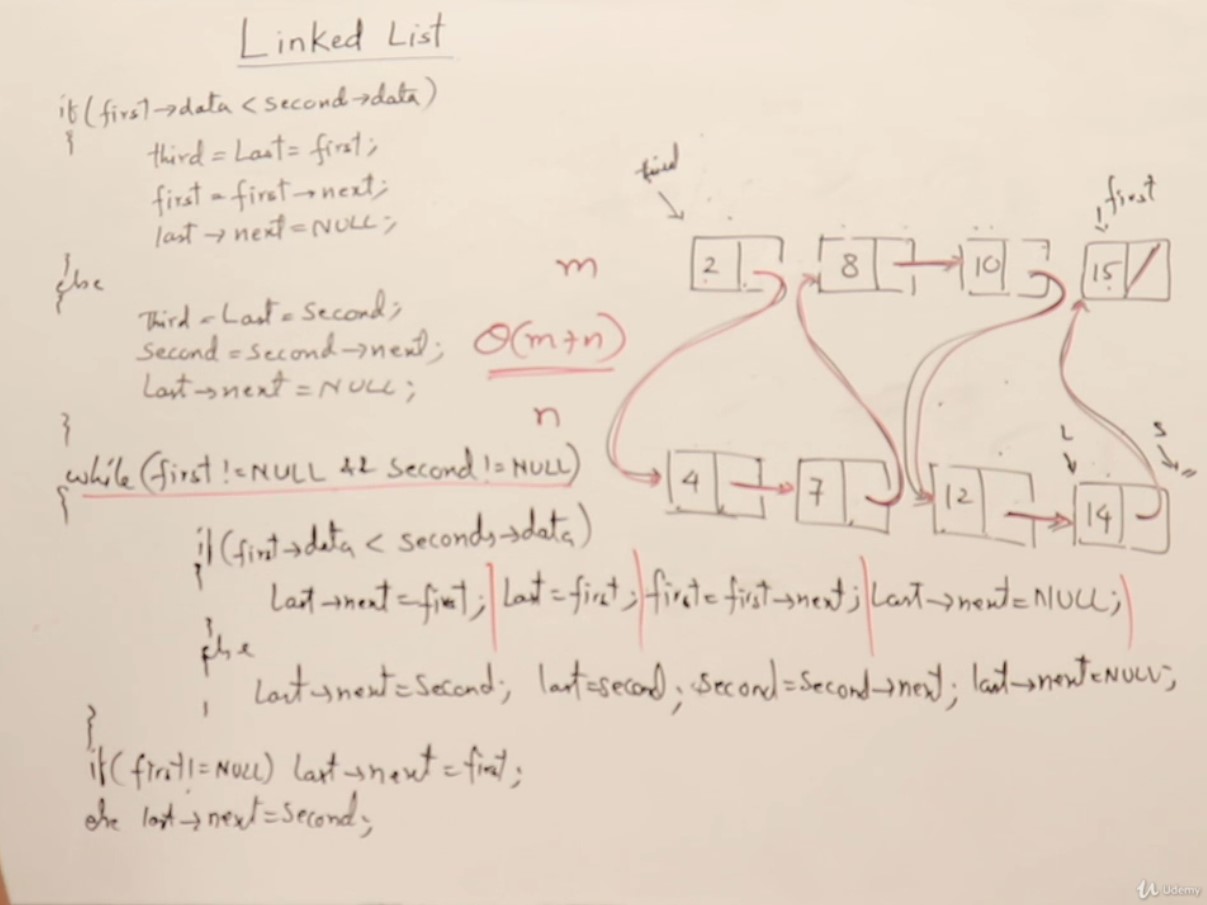 Linked List
if(first→data < second→data)
{
third = Last = first;
first = first→next;
last → next = NULL;
}
else
{
Third = Last = Second;
Second = Second→next;
Last→next = NULL;
}
while(first != NULL && Second != NULL)
{
if(first→data < seconds→data)
{
Last→next = first; Last = first; first = first→next; Last→next = NULL;
}
else
{
Last→next = Second; last = second; Second = Second→next; last→next = NULL;
}
}
if(first != NULL) Last→next = first;
else last→next = Second;
m
θ(m+n)
n
third
first
2 8 10 15
L S
4 7 12 14
Udemy